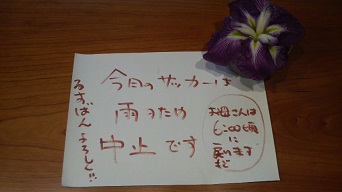 今日のサッカーは
雨のため
中止です
お母さんは
6:00頃
に
戻ります
まど
るすばんよろしく!!